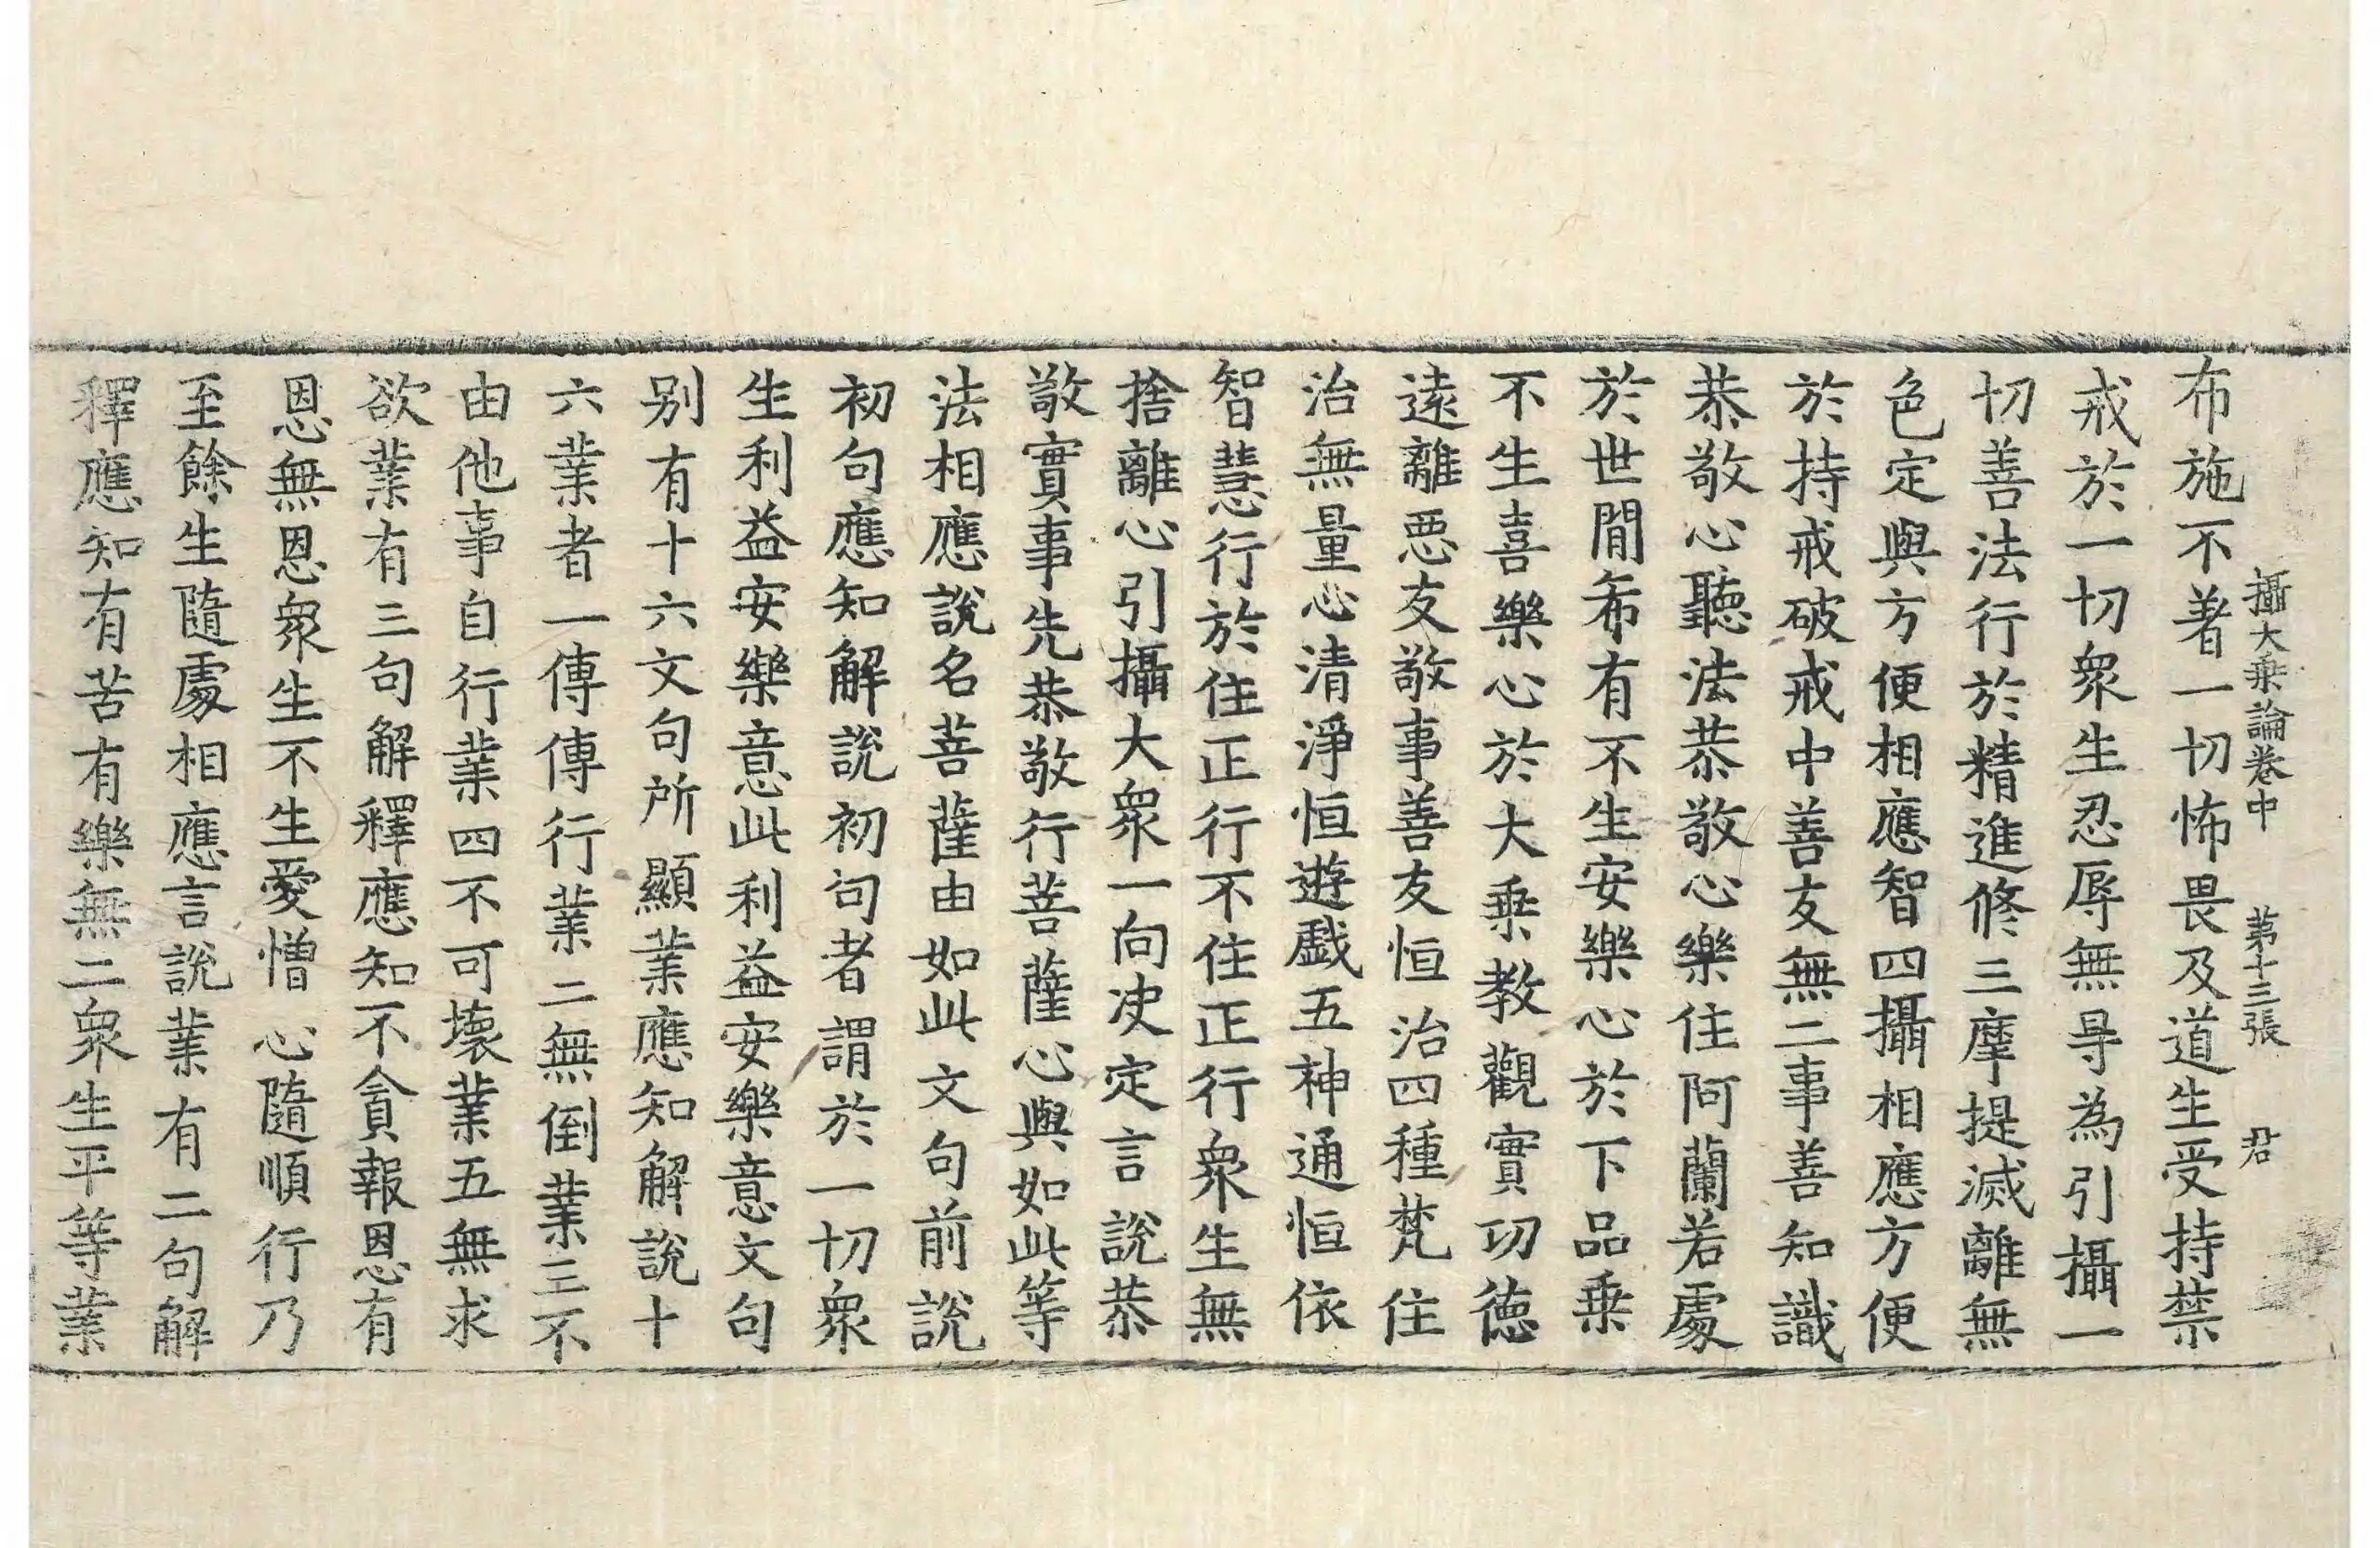 攝大乗論卷中 第十三張 君
布施不著一切怖畏及道生受持禁
戒於一切衆生忍辱無㝵為引攝一
切善法行於精進修三摩提滅離無
色定與方便相應智四攝相應方便
於持戒破戒中善友無二事善知識
恭敬心聽法恭敬心樂住阿蘭若處
於世間希有不生安樂心於下品乗
不生喜樂心於大乗教觀實功德
遠離惡友敬事善友恒治四種梵住
治無量心清淨恒遊戲五神通恒依
智慧行於住正行不住正行衆生無
捨離心引攝大衆一向决定言說恭
敬實事先恭敬行菩薩心與如此等
法相應說名菩薩由如此文句前說
初句應知解說初句者謂於一切衆
生利益安樂意此利益安樂意文句
别有十六文句所顯業應知解說十
六業者一傳傳行業二無倒業三不
由他事自行業四不可壞業五無求
欲業有三句解釋應知不貪報恩有
恩無恩衆生不生愛憎心隨順行乃
至餘生隨處相應言說業有二句解
釋應知有苦有樂無二衆生平等業